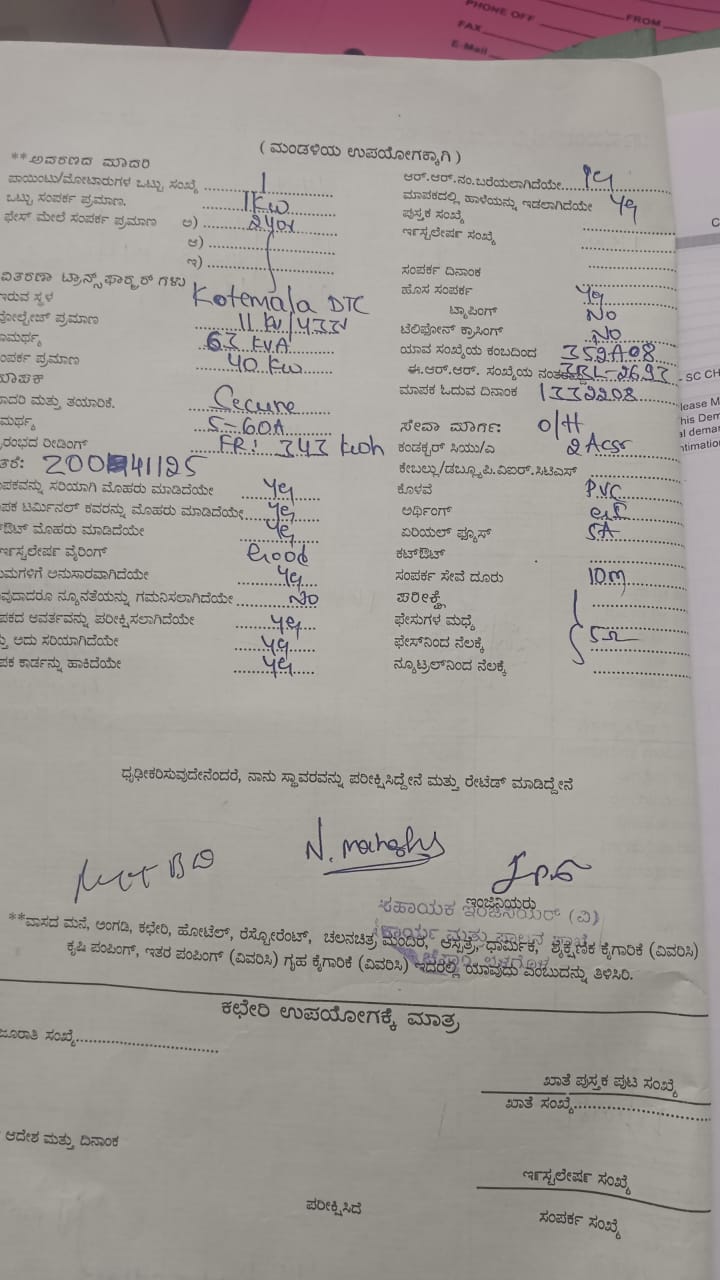 PHONE OFF
FROM
FAX
E-Mail
( ಮಂಡಳಿಯ ಉಪಯೋಗಕ್ಕಾಗಿ )
**ಆವರಣದ ಮಾದರಿ
ಪಾಯಿಂಟು/ಮೋಟಾರುಗಳ ಒಟ್ಟು ಸಂಖ್ಯೆ 1
ಆರ್.ಆರ್.ನಂ.ಬರೆಯಲಾಗಿದೆಯೇ
ಒಟ್ಟು ಸಂಪರ್ಕ ಪ್ರಮಾಣ. 1KW
ಮಾಪಕದಲ್ಲಿ ಹಾಳೆಯನ್ನು ಇಡಲಾಗಿದೆಯೇ
ಫೇಸ್ ಮೇಲೆ ಸಂಪರ್ಕ ಪ್ರಮಾಣ ಅ) 240V
ಪುಸ್ತಕ ಸಂಖ್ಯೆ
ಆ)
ಇನ್ಸ್ಟಲೇಷನ್ ಸಂಖ್ಯೆ
ಇ)
ವಿತರಣಾ ಟ್ರಾನ್ಸ್‌ಫಾರ್ಮರ್ ಗಳು
ಸಂಪರ್ಕ ದಿನಾಂಕ
ಇರುವ ಸ್ಥಳ Kotemala DTC
ಹೊಸ ಸಂಪರ್ಕ
ವೋಲ್ಟೇಜ್ ಪ್ರಮಾಣ 11 KV/433V
ಟ್ಯಾಪಿಂಗ್ No
ಸಾಮರ್ಥ್ಯ 63 KVA
ಟೆಲಿಫೋನ್ ಕ್ರಾಸಿಂಗ್ No
ಸಂಪರ್ಕ ಪ್ರಮಾಣ 40 KW
ಯಾವ ಸಂಖ್ಯೆಯ ಕಂಬದಿಂದ 352A08
ಈ.ಆರ್.ಆರ್. ಸಂಖ್ಯೆಯ 3BL-2693
- SC CH
ಮಾದರಿ ಮತ್ತು ತಯಾರಿಕೆ. Secure
ಮಾಪಕ ಓದುವ ದಿನಾಂಕ 1332208
5-60A
ಸೇವಾ ಮಾರ್ಗ: O/H
FR: 343 kwh
ಕಂಡಕ್ಟರ್ ಸಿಯು/ಎ 2 Acsr
41125
ಕೇಬಲ್ಲು/ಡಬ್ಲ್ಯೂ.ಪಿ.ವಿಐಆರ್.ಸಿಟಿಎಸ್
ಪಕವನ್ನು ಸರಿಯಾಗಿ ಮೊಹರು ಮಾಡಿದೆಯೇ
ಕೊಳವೆ PVC
ಪಕ ಟರ್ಮಿನಲ್ ಕವರನ್ನು ಮೊಹರು ಮಾಡಿದೆಯೇ
ಅರ್ಥಿಂಗ್
ಔಟ್ ಮೊಹರು ಮಾಡಿದೆಯೇ
ಏರಿಯಲ್ ಫ್ಯೂಸ್ 5A
ವೈರಿಂಗ್ Good
ಕಟ್‌ಔಟ್
ಮಗಳಿಗೆ ಅನುಸಾರವಾಗಿದೆಯೇ
ಸಂಪರ್ಕ ಸೇವೆ ದೂರು 10m
ವುದಾದರೂ ನ್ಯೂನತೆಯನ್ನು ಗಮನಿಸಲಾಗಿದೆಯೇ No
ಪರೀಕ್ಷೆ
ಪಕದ ಆವರ್ತವನ್ನು ಪರೀಕ್ಷಿಸಲಾಗಿದೆಯೇ
ಫೇಸುಗಳ ಮಧ್ಯೆ
ಅದು ಸರಿಯಾಗಿದೆಯೇ
ಫೇಸ್‌ನಿಂದ ನೆಲಕ್ಕೆ 5Ω
ಪಕ ಕಾರ್ಡನ್ನು ಹಾಕಿದೆಯೇ
ನ್ಯೂಟ್ರಲ್‌ನಿಂದ ನೆಲಕ್ಕೆ
ಧೃಢೀಕರಿಸುವುದೇನೆಂದರೆ, ನಾನು ಸ್ಥಾವರವನ್ನು ಪರೀಕ್ಷಿಸಿದ್ದೇನೆ ಮತ್ತು ರೇಟೆಡ್ ಮಾಡಿದ್ದೇನೆ
ಇಂಜಿನಿಯರು
ಸಹಾಯಕ ಇಂಜಿನಿಯರ್ (ವಿ)
**ವಾಸದ ಮನೆ, ಅಂಗಡಿ, ಕಛೇರಿ, ಹೋಟೆಲ್, ರೆಸ್ಟೋರೆಂಟ್, ಚಲನಚಿತ್ರ ಮಂದಿರ, ಆಸ್ಪತ್ರೆ, ಧಾರ್ಮಿಕ, ಶೈಕ್ಷಣಿಕ ಕೈಗಾರಿಕೆ (ವಿವರಿಸಿ)
ಕೃಷಿ ಪಂಪಿಂಗ್, ಇತರ ಪಂಪಿಂಗ್ (ವಿವರಿಸಿ) ಗೃಹ ಕೈಗಾರಿಕೆ (ವಿವರಿಸಿ) ಇದರಲ್ಲಿ ಯಾವುದು ಎಂಬುದನ್ನು ತಿಳಿಸಿರಿ.
ಕಛೇರಿ ಉಪಯೋಗಕ್ಕೆ ಮಾತ್ರ
ಜೂರಾತಿ ಸಂಖ್ಯೆ
ಖಾತೆ ಪುಸ್ತಕ ಪುಟ ಸಂಖ್ಯೆ
ಖಾತೆ ಸಂಖ್ಯೆ
ಆದೇಶ ಮತ್ತು ದಿನಾಂಕ
ಇನ್ಸ್ಟಲೇಷನ್ ಸಂಖ್ಯೆ
ಪರೀಕ್ಷಿಸಿದೆ
ಸಂಪರ್ಕ ಸಂಖ್ಯೆ